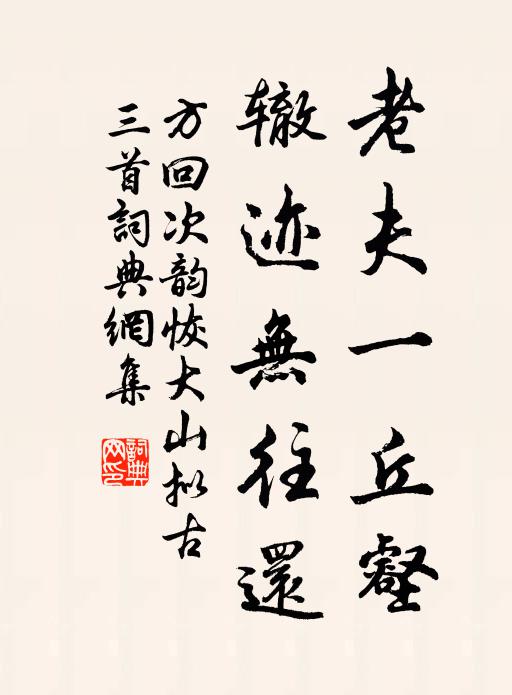 老夫一丘壑
辙迹無往還
方回次韵恢大山拟古
三首詞典網集
詞典網印